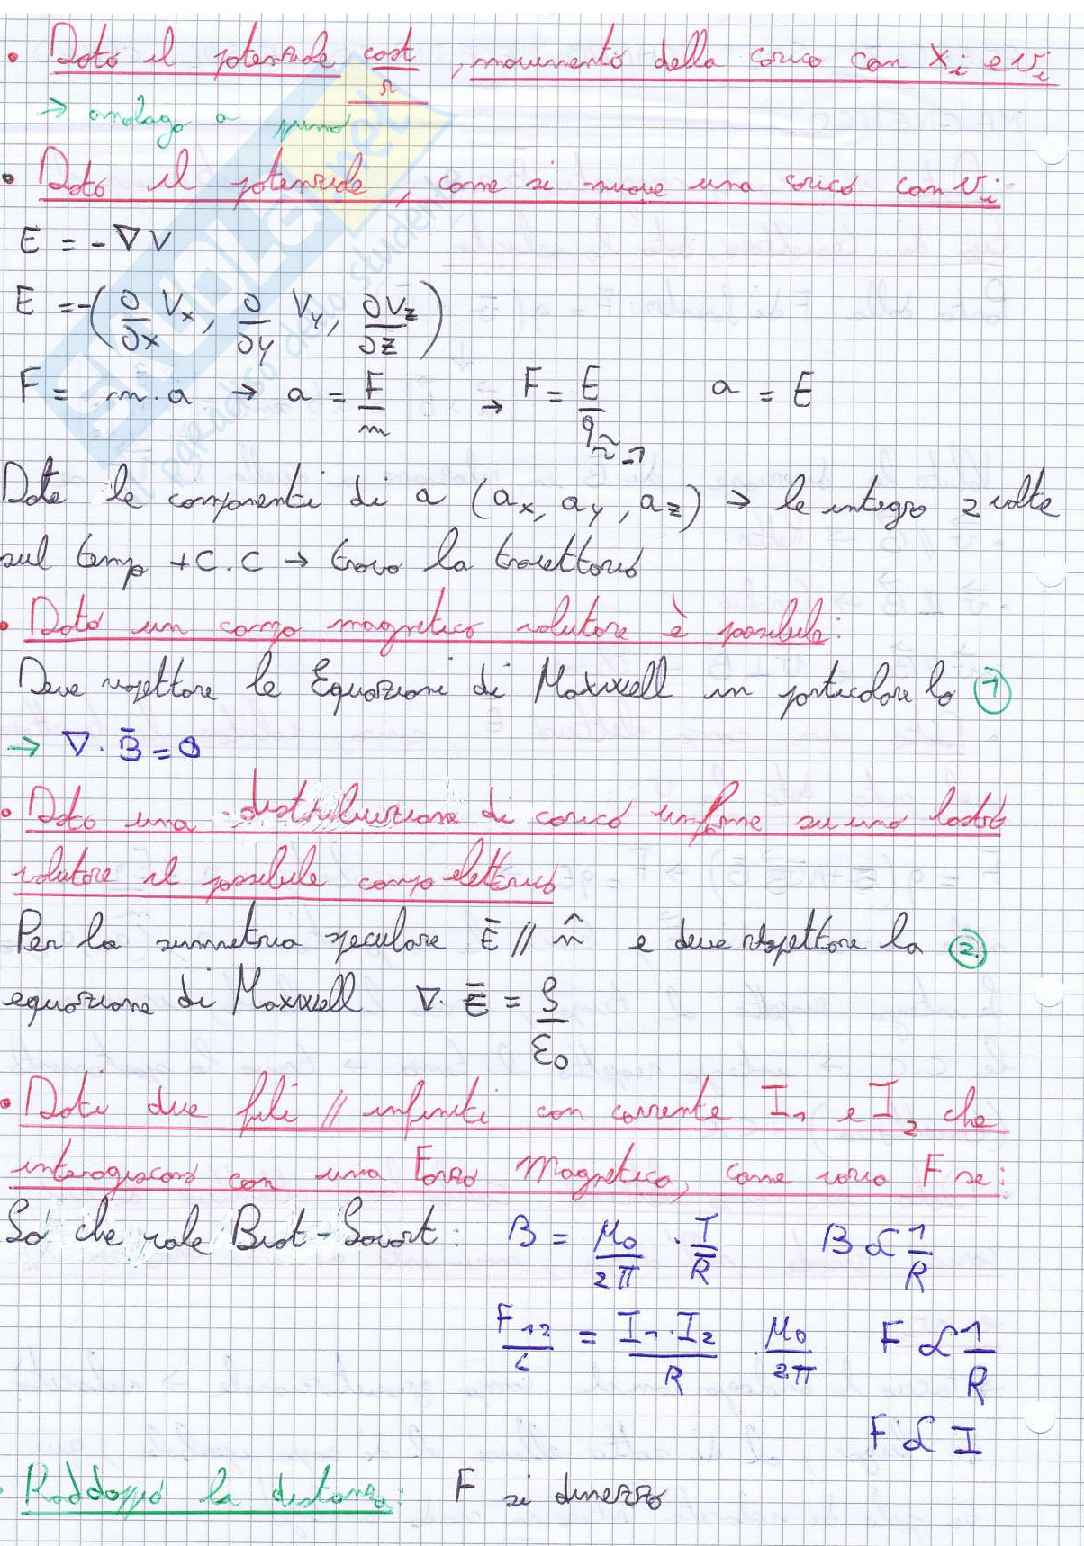 • Dato il potenziale cost/r, movimento della carica con xi e vi
→ analogo a prima
• Dato il potenziale, come si muove una carica con vi
E = -∇V
E = -(∂/∂x Vx, ∂/∂y Vy, ∂Vz/∂z)
F = m·a → a = F/m → F = E/q a = E
Date le componenti di a (ax, ay, az) → le integro 2 volte
sul tempo + C.C → trovo la traiettoria
• Dato un campo magnetico valutare è possibile:
Deve rispettare le Equazioni di Maxwell in particolare la ①
→ ∇·B̄ = 0
• Data una distribuzione di carica uniforme su una lastra
valutare il possibile campo elettrico
Per la simmetria speculare Ē // n̂ e deve rispettare la ②
equazione di Maxwell ∇·Ē = ρ/ε0
• Dati due fili // infiniti con corrente I1 e I2 che
interagiscono con una Forza Magnetica, come varia F se:
So che vale Biot-Savart: B = μ0/2π · I/R B ∝ 1/R
F12/L = I1·I2/R · μ0/2π F ∝ 1/R
F ∝ I
• Raddoppio la distanza: F si dimezza